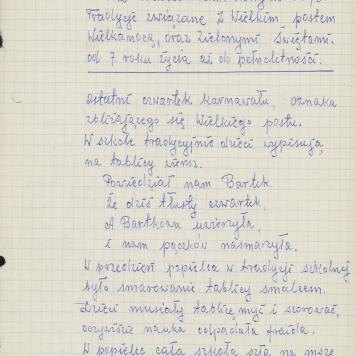 Tradycje związane z Wielkim postem
Wielkanocą, oraz Zielonymi Świętami.
od 7 roku życia aż do pełnoletności.
ostatni czwartek karnawału, oznaka
zbliżającego się Wielkiego postu.
W szkole tradycyjnie dzieci wypisują
na tablicy wiersz.
Powiedział nam Bartek
że dziś tłusty czwartek,
A Bartkowa uwierzyła,
i nam pączków nasmarzyła.
W przedzień popielca w tradycji szkolnej
było smarowanie tablicy smalcem.
Dzieci musiały tablicę myć i szorować,
oczywiście nauka odpadała frajda.
W popielec cała szkoła szła na mszę